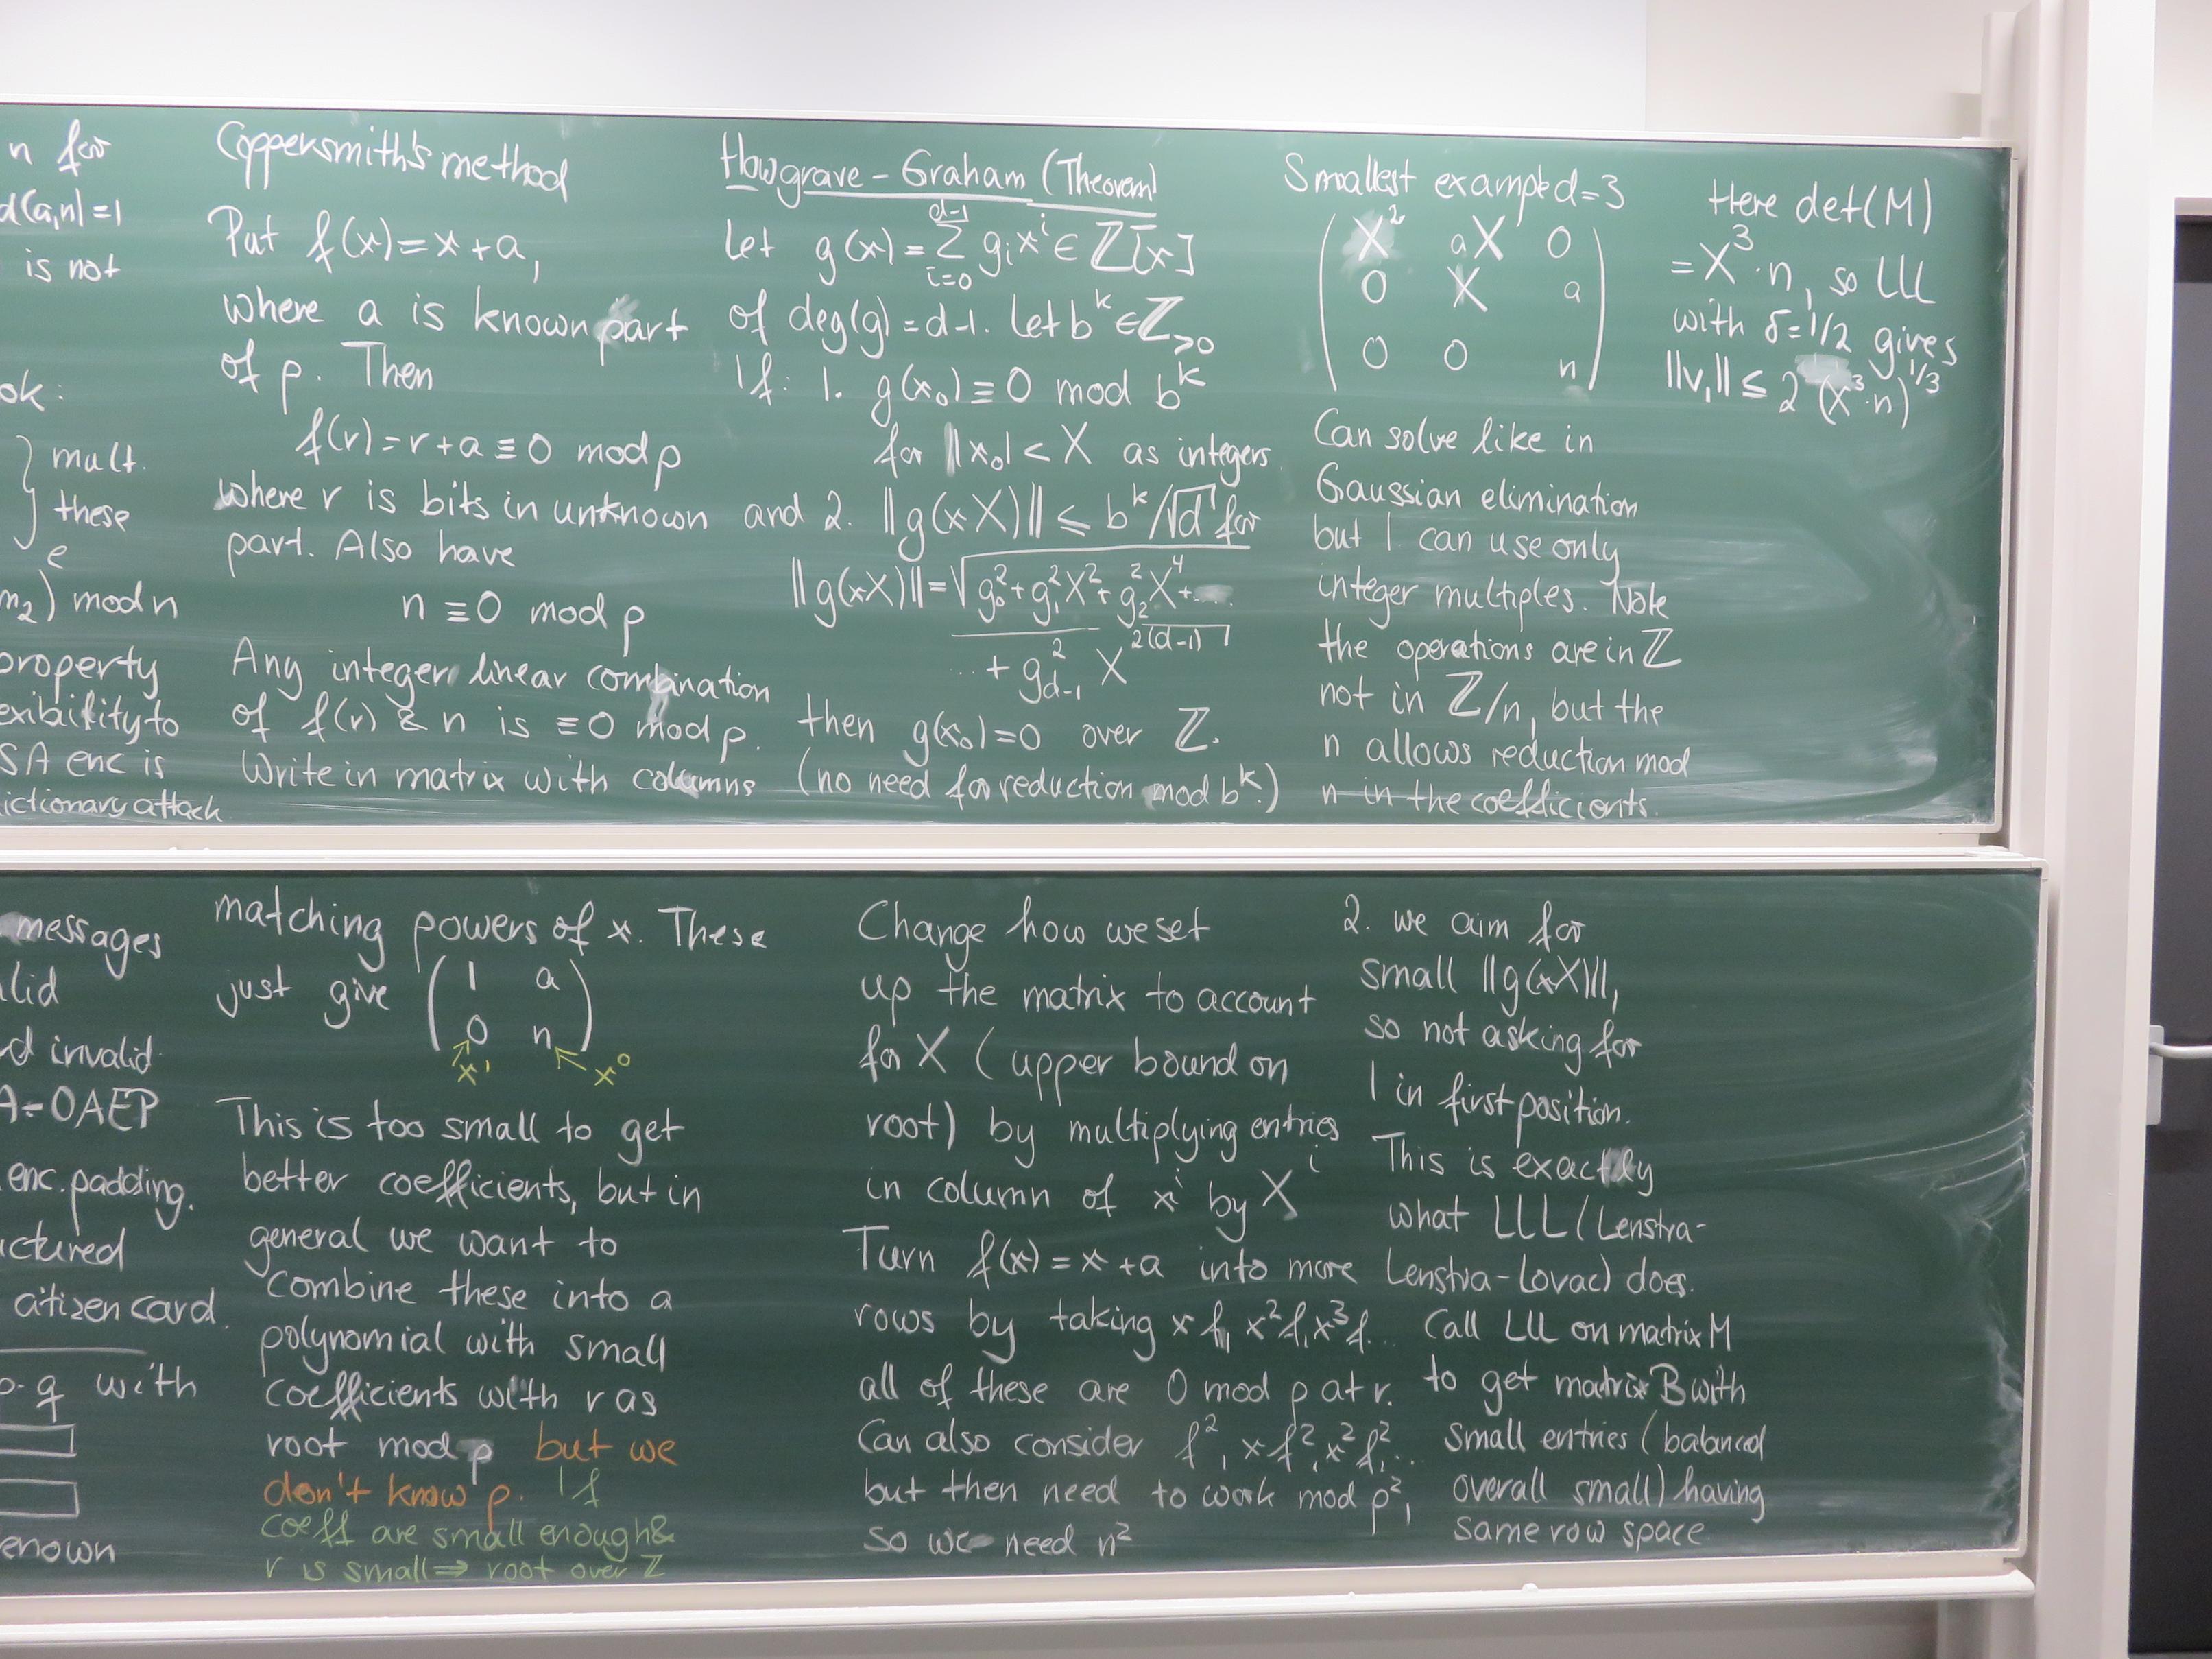 n for
d(a,n)=1
is not
ok:
mult.
these
e
m₂) mod n
property
exibility to
SA enc is
ictionary attack
messages
lid
d invalid
A-OAEP
enc. padding.
ctured
citizen card.
p·q with
known
Coppersmith's method
Put f(x)=x+a,
where a is known part
of p. Then
f(r)=r+a≡0 mod p
where r is bits in unknown
part. Also have
n≡0 mod p
Any integer linear combination
of f(r) & n is ≡0 mod p.
Write in matrix with columns
matching powers of x. These
just give ( 1 a
0 n )
x¹ x⁰
This is too small to get
better coefficients, but in
general we want to
combine these into a
polynomial with small
coefficients with r as
root mod p but we
don't know p. If
coeff are small enough &
r is small ⇒ root over ℤ
Howgrave-Graham (Theorem)
Let g(x)=∑_{i=0}^{d-1} gᵢxⁱ ∈ ℤ[x]
of deg(g)=d-1. Let bᵏ∈ℤ_{>0}
If: 1. g(x₀)≡0 mod bᵏ
for |x₀|<X as integers
and 2. ||g(xX)|| ≤ bᵏ/√d for
||g(xX)||=√g₀²+g₁²X²+g₂²X⁴+...
..+g_{d-1}²X^{2(d-1)}
then g(x₀)=0 over ℤ.
(no need for reduction mod bᵏ.)
Change how we set
up the matrix to account
for X (upper bound on
root) by multiplying entries
in column of xⁱ by Xⁱ
Turn f(x)=x+a into more
rows by taking xf, x²f, x³f...
all of these are 0 mod p at r.
Can also consider f², xf², x²f²,...
but then need to work mod p²,
so we need n²
Smallest example d=3
( X² aX 0
0 X a
0 0 n )
Can solve like in
Gaussian elimination
but I can use only
integer multiples. Note
the operations are in ℤ
not in ℤ/n, but the
n allows reduction mod
n in the coefficients.
Here det(M)
=X³·n, so LLL
with δ=1/2 gives
||v₁|| ≤ 2 (X³·n)^{1/3}
2. we aim for
small ||g(xX)||,
so not asking for
1 in first position.
This is exactly
what LLL (Lenstra-
Lenstra-Lovac) does.
Call LLL on matrix M
to get matrix B with
small entries (balanced
overall small) having
same row space.